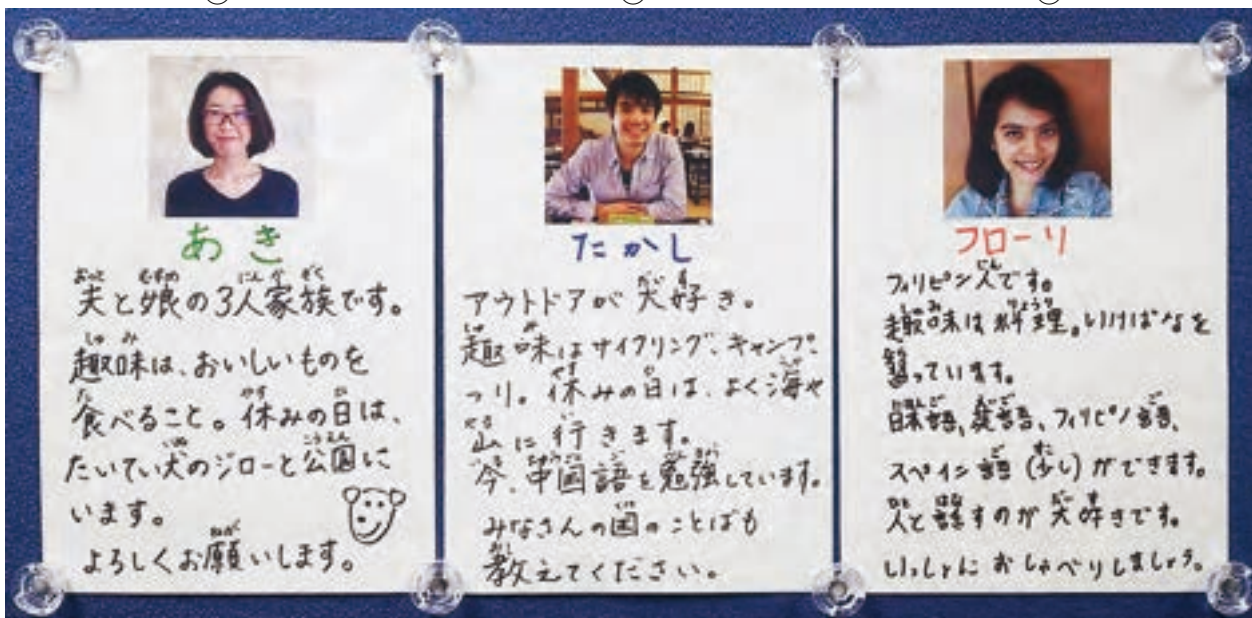 あき
夫と娘の3人家族です。
趣味は、おいしいものを
食べること。休みの日は、
たいてい犬のジローと公園に
います。
よろしくお願いします。
たかし
アウトドアが大好き。
趣味はサイクリング、キャンプ、
つり。休みの日は、よく海や
山に行きます。
今、中国語を勉強しています。
みなさんの国のことばも
教えてください。
フローリ
フィリピン人です。
趣味は料理。いけばなを
習っています。
日本語、英語、フィリピノ語、
スペイン語(少し)ができます。
人と話すのが大好きです。
いっしょにおしゃべりしましょう。